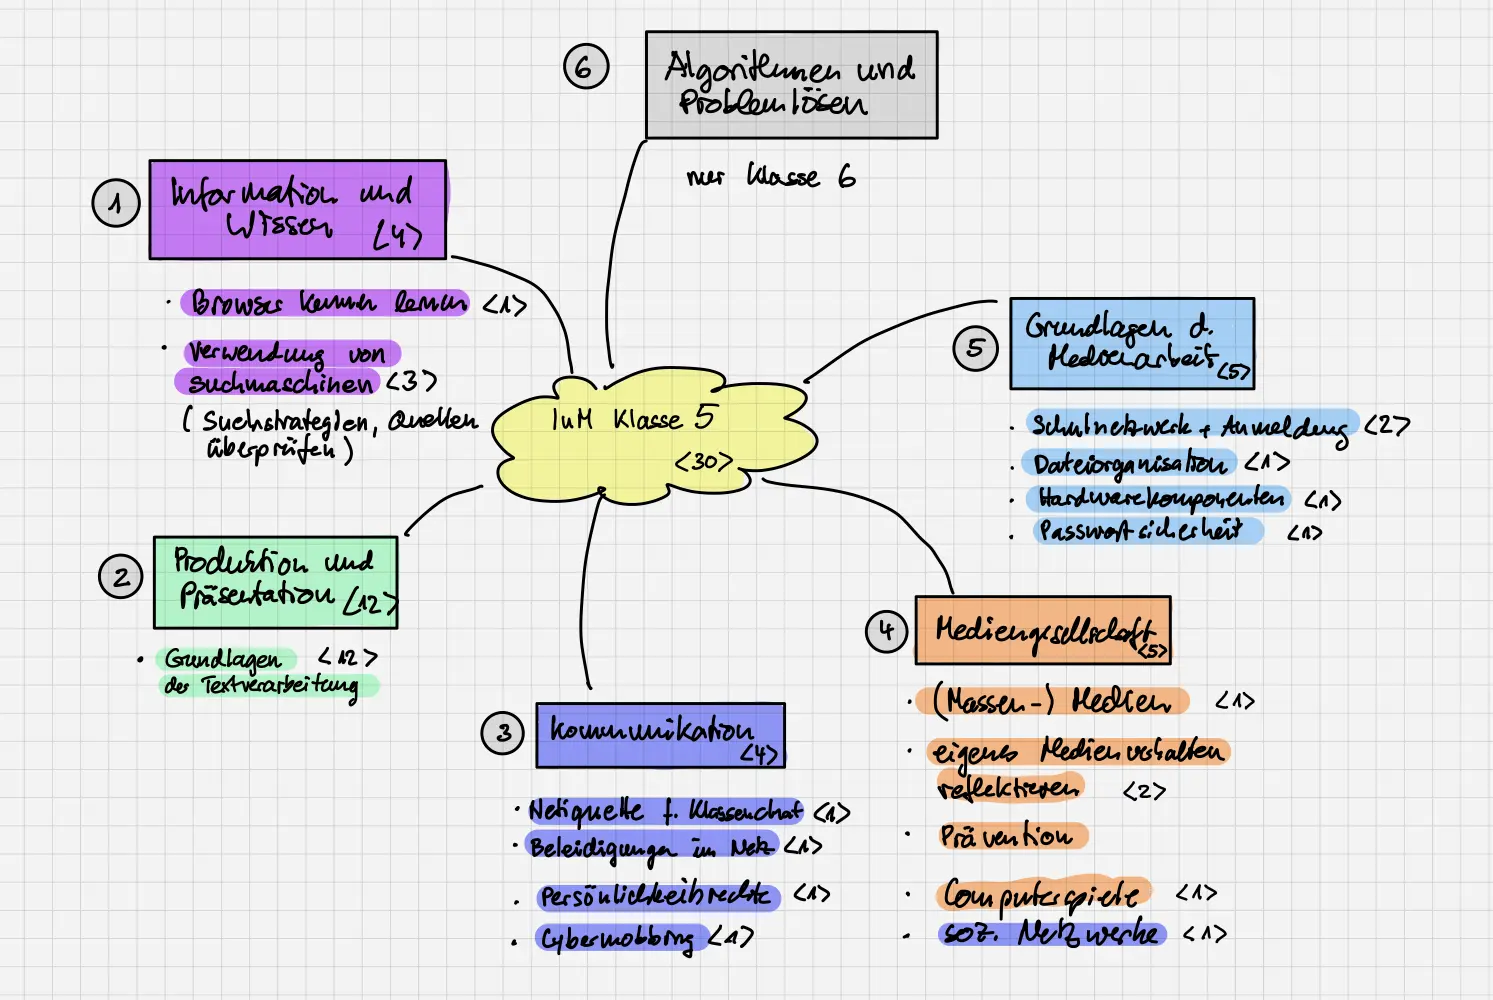 6
Algorithmen und
Problemlösen
nur Klasse 6
1
Information und
Wissen <4>
· Browser kennen lernen <1>
· Verwendung von
Suchmaschinen <3>
(Suchstrategien, Quellen
überprüfen)
IuM Klasse 5
<30>
5
Grundlagen d.
Medienarbeit <5>
· Schulnetzwerk + Anmeldung <2>
· Dateiorganisation <1>
· Hardwarekomponenten <1>
· Passwortsicherheit <1>
2
Produktion und
Präsentation <12>
· Grundlagen <12>
der Textverarbeitung
3
Kommunikation
<4>
· Netiquette f. Klassenchat <1>
· Beleidigungen im Netz <1>
· Persönlichkeitsrechte <1>
· Cybermobbing <1>
4
Mediengesellschaft
<5>
· (Massen-) Medien <1>
· eigenes Medienverhalten
reflektieren <2>
· Prävention
· Computerspiele <1>
· soz. Netzwerke <1>